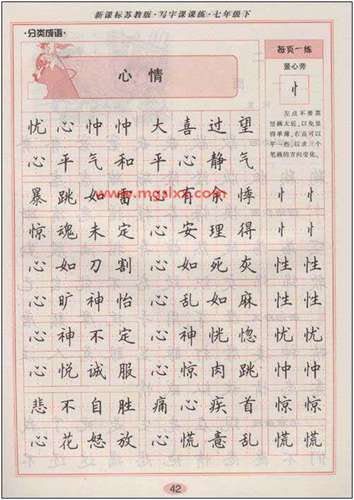 新课标苏教版·写字课课练·七年级下
·分类成语·
心情
每页一练
竖心旁
忄
左点不要靠
竖画太近,以免显
得单薄,右点可以
平一些,以求三个
笔画的方向变化。
忧心忡忡 大喜过望
心平气和 平心静气
暴跳如雷 心有余悸 忄忄
惊魂未定 心安理得 忄忄
心如刀割 心如死灰 性性
心旷神怡 心乱如麻 性性
心神不定 心神恍惚 忧忧
心悦诚服 心惊肉跳 忡忡
悲不自胜 痛心疾首 惊惊
心花怒放 心慌意乱 慌慌
42